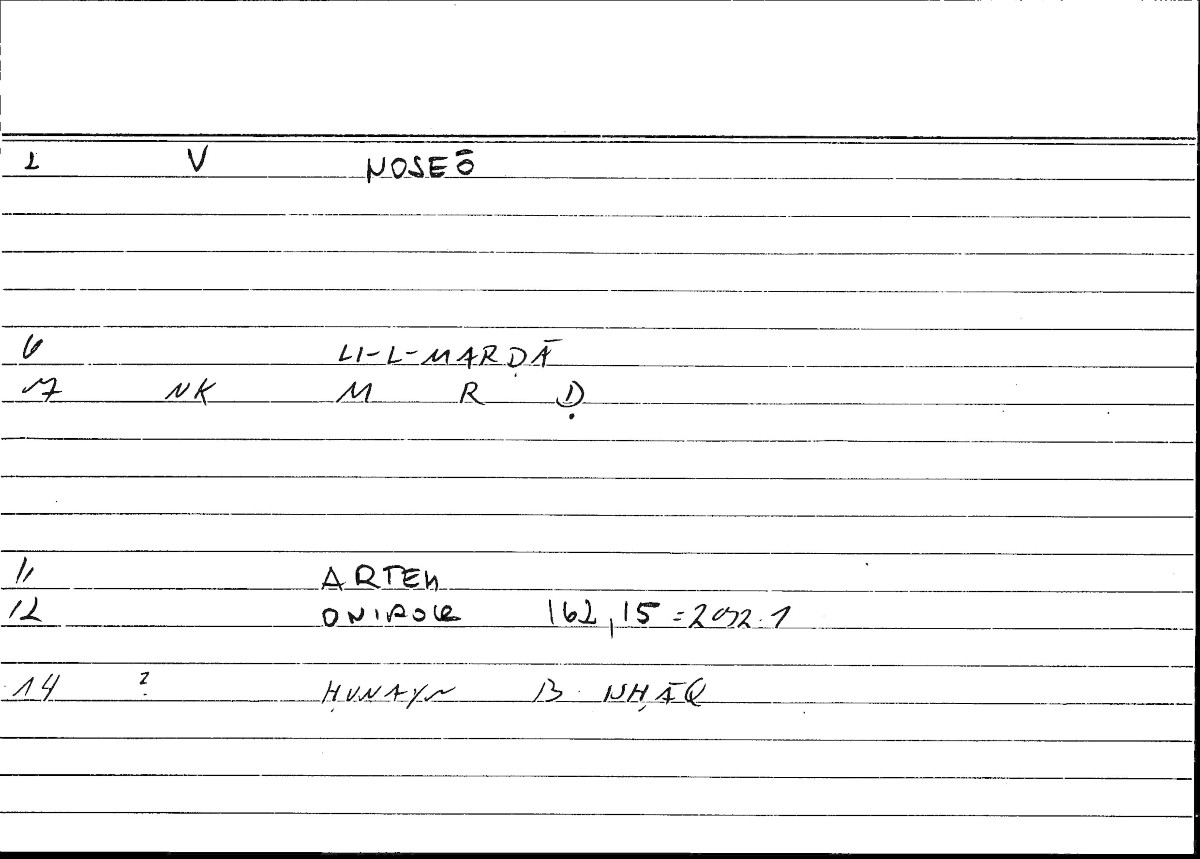 1 V NOSEŌ
6 LI-L-MARḌĀ
7 NK M R Ḍ
11 ARTEM
12 ONIROCR 162,15 = 292.1
14 2 ḤUNAYN B. ISḤĀQ